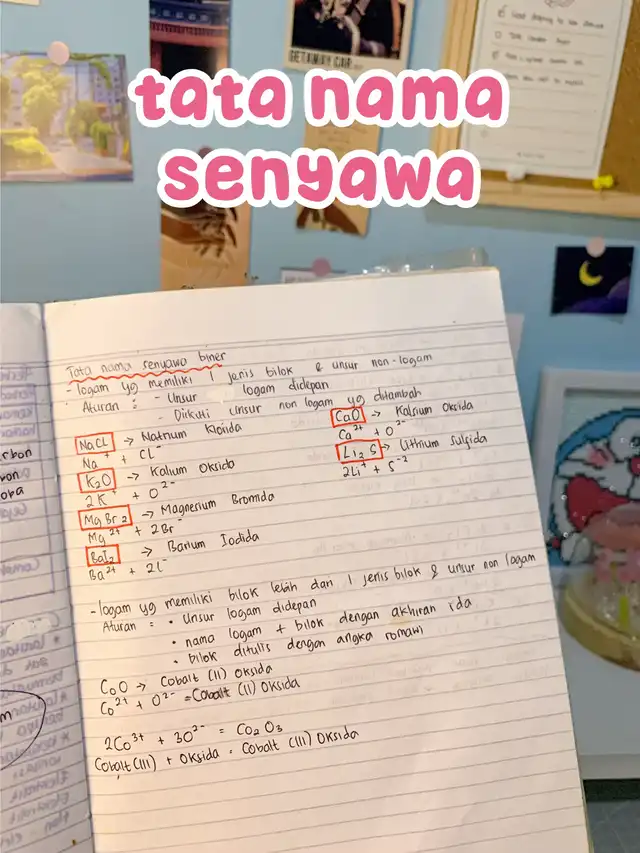 tata nama
senyawa
GETAWAY CAR
Tata nama senyawa biner
- logam yg memiliki 1 jenis bilok & unsur non-logam
Aturan = - Unsur logam didepan
- Diikuti unsur non logam yg ditambah
NaCl → Natrium Klorida
Na⁺ + CL⁻
K₂O → Kalium Oksida
2K⁺ + O²⁻
MgBr₂ → Magnerium Bromida
Mg²⁺ + 2Br⁻
BaI₂ → Barium Iodida
Ba²⁺ + 2I⁻
CaO → Kalsium Oksida
Ca²⁺ + O²⁻
Li₂S → Lithium Sulfida
2Li⁺ + S⁻²
- logam yg memiliki bilok lebih dari 1 jenis bilok & unsur non logam
Aturan = • Unsur logam didepan
• nama logam + bilok dengan akhiran ida
• bilok ditulis dengan angka romawi
CoO → Cobalt (II) Oksida
Co²⁺ + O²⁻ = Cobalt (II) Oksida
2Co³⁺ + 3O²⁻ = Co₂O₃
Cobalt (III) + Oksida = Cobalt (III) Oksida